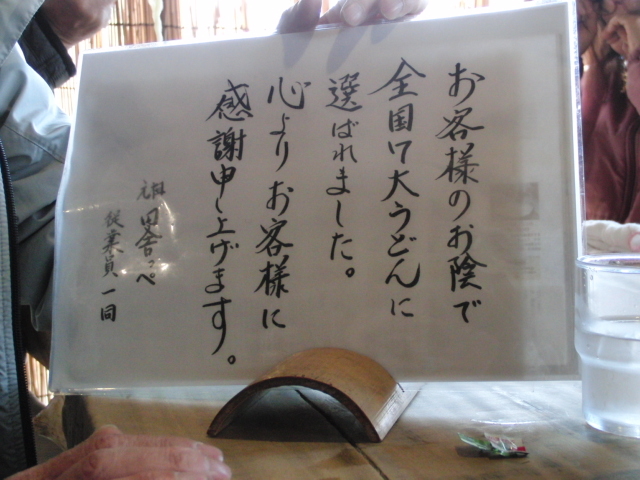 お客様のお陰で
全国17大うどんに
選ばれました。
心よりお客様に
感謝申し上げます。
田舎っぺ
従業員一同